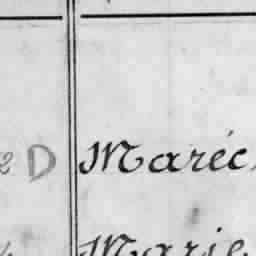 2 D Maréc
Marie